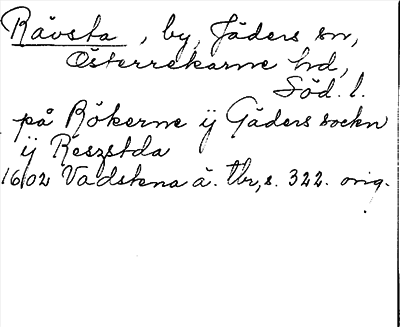 Rävsta, by, Jäders sn,
Österrekarne hd,
Söd. l.
på Rökerne ÿ Gäders sockn
ÿ Reszstda
1602 Vadstena ä. tbr, s. 322. orig.